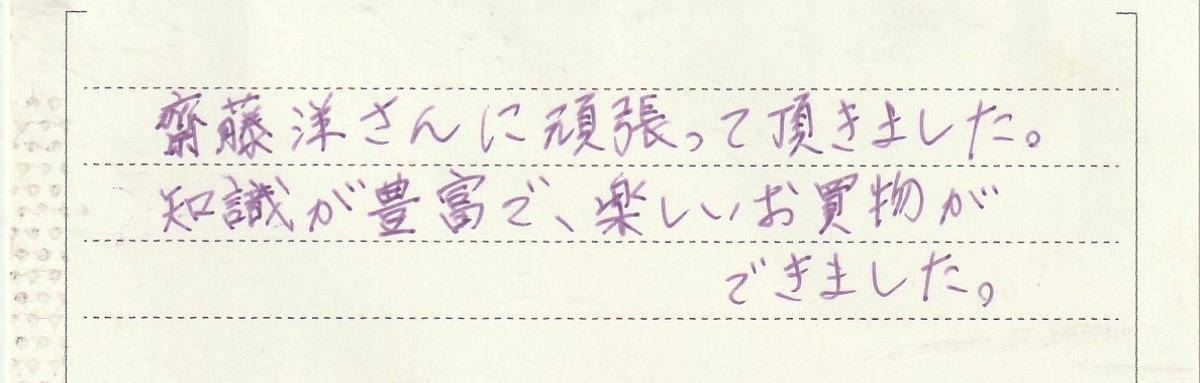 齋藤洋さんに頑張って頂きました。
知識が豊富で、楽しいお買物が
できました。